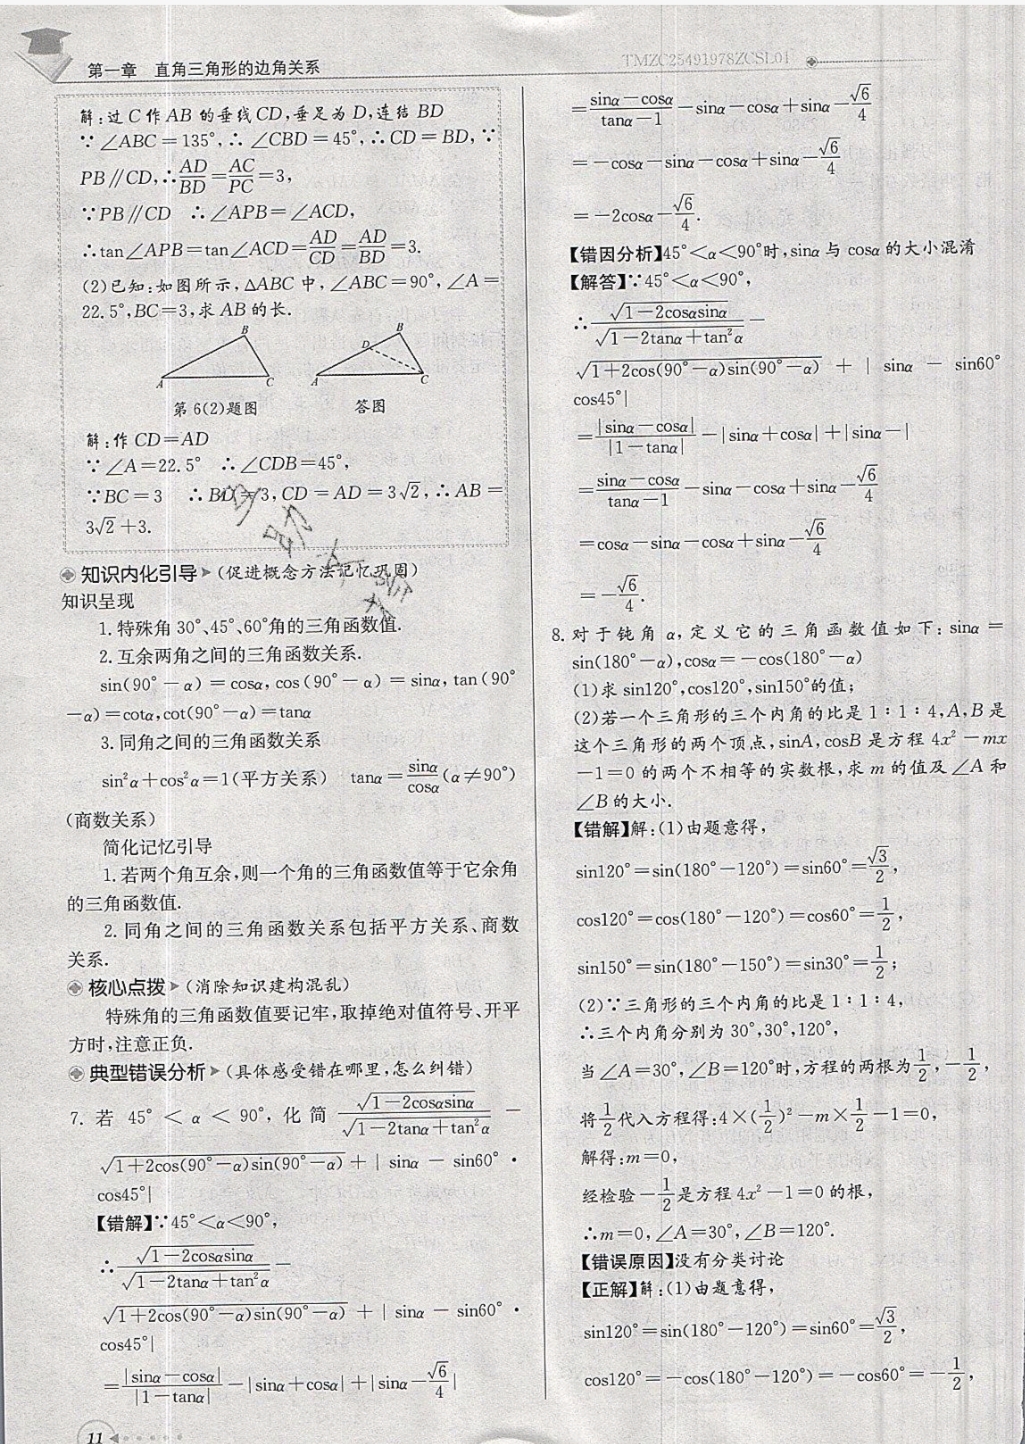 第一章 直角三角形的边角关系
TMZC25491978ZCSL01
解:过 C 作 AB 的垂线 CD,垂足为 D,连结 BD
∵∠ABC=135°,∴∠CBD=45°,∴CD=BD,∵
PB∥CD,∴AD/BD=AC/PC=3,
∵PB∥CD ∴∠APB=∠ACD,
∴tan∠APB=tan∠ACD=AD/CD=AD/BD=3.
(2)已知:如图所示,△ABC 中,∠ABC=90°,∠A=
22.5°,BC=3,求 AB 的长.
B
A
C
B
D
A
C
第 6(2)题图
答图
解:作 CD=AD
∵∠A=22.5° ∴∠CDB=45°,
∵BC=3 ∴BD=3,CD=AD=3√2,∴AB=
3√2+3.
知识内化引导 (促进概念方法记忆巩固)
知识呈现
1.特殊角 30°、45°、60°角的三角函数值.
2.互余两角之间的三角函数关系.
sin(90°-α)=cosα,cos(90°-α)=sinα,tan(90°
-α)=cotα,cot(90°-α)=tanα
3.同角之间的三角函数关系
sin²α+cos²α=1(平方关系) tanα=sinα/cosα(α≠90°)
(商数关系)
简化记忆引导
1.若两个角互余,则一个角的三角函数值等于它余角
的三角函数值.
2.同角之间的三角函数关系包括平方关系、商数
关系.
核心点拨 (消除知识建构混乱)
特殊角的三角函数值要记牢,取掉绝对值符号、开平
方时,注意正负.
典型错误分析 (具体感受错在哪里,怎么纠错)
7.若 45°<α<90°,化简 √(1-2cosαsinα)/√(1-2tanα+tan²α) -
√(1+2cos(90°-α)sin(90°-α))+|sinα-sin60°·
cos45°|
【错解】∵45°<α<90°,
∴√(1-2cosαsinα)/√(1-2tanα+tan²α)-
√(1+2cos(90°-α)sin(90°-α))+|sinα-sin60°·
cos45°|
=|sinα-cosα|/|1-tanα|-|sinα+cosα|+|sinα-√6/4|
=(sinα-cosα)/(tanα-1)-sinα-cosα+sinα-√6/4
=-cosα-sinα-cosα+sinα-√6/4
=-2cosα-√6/4.
【错因分析】45°<α<90°时,sinα 与 cosα 的大小混淆
【解答】∵45°<α<90°,
∴√(1-2cosαsinα)/√(1-2tanα+tan²α)-
√(1+2cos(90°-α)sin(90°-α))+|sinα-sin60°
cos45°|
=|sinα-cosα|/|1-tanα|-|sinα+cosα|+|sinα-|
=(sinα-cosα)/(tanα-1)-sinα-cosα+sinα-√6/4
=cosα-sinα-cosα+sinα-√6/4
=-√6/4.
8.对于钝角 α,定义它的三角函数值如下:sinα=
sin(180°-α),cosα=-cos(180°-α)
(1)求 sin120°,cos120°,sin150°的值;
(2)若一个三角形的三个内角的比是 1:1:4,A,B 是
这个三角形的两个顶点,sinA,cosB 是方程 4x²-mx
-1=0 的两个不相等的实数根,求 m 的值及∠A 和
∠B 的大小.
【错解】解:(1)由题意得,
sin120°=sin(180°-120°)=sin60°=√3/2,
cos120°=cos(180°-120°)=cos60°=1/2,
sin150°=sin(180°-150°)=sin30°=1/2;
(2)∵三角形的三个内角的比是 1:1:4,
∴三个内角分别为 30°,30°,120°,
当∠A=30°,∠B=120°时,方程的两根为1/2,-1/2,
将1/2代入方程得:4×(1/2)²-m×1/2-1=0,
解得:m=0,
经检验-1/2是方程 4x²-1=0 的根,
∴m=0,∠A=30°,∠B=120°.
【错误原因】没有分类讨论
【正解】解:(1)由题意得,
sin120°=sin(180°-120°)=sin60°=√3/2,
cos120°=-cos(180°-120°)=-cos60°=-1/2,
11